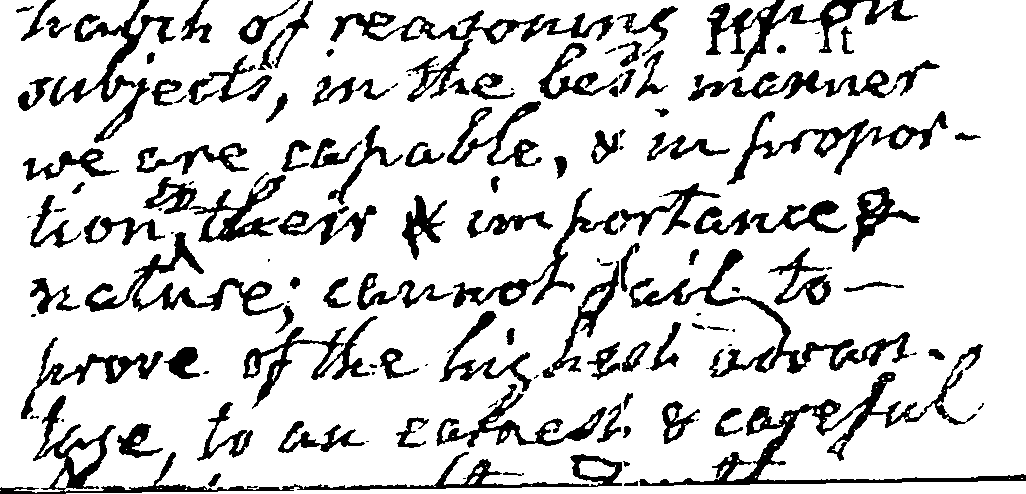 habit of reasoning upon
subjects, in the best manner
we are capable, & in propor-
tion to their & importance &
nature; cannot fail to —
prove of the highest advan-
tage, to an earnest & careful